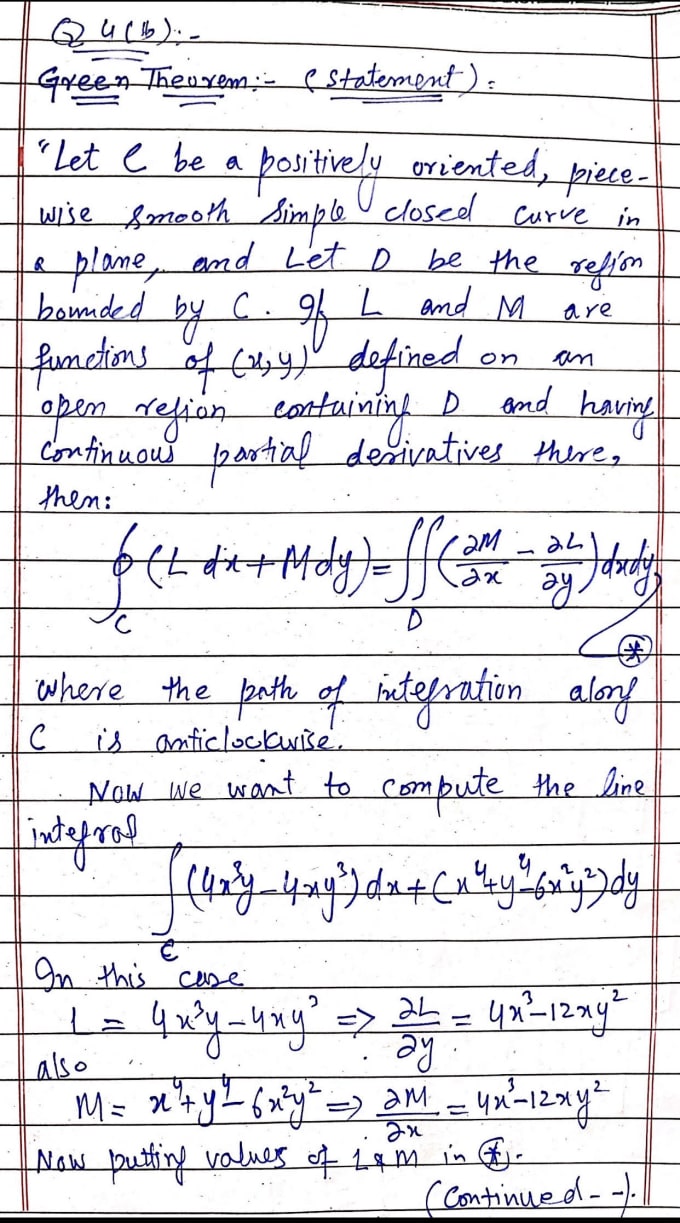 Q 4(b):-
Green Theorem:- (Statement):
"Let C be a positively oriented, piece-
wise smooth simple closed curve in
a plane, and Let D be the region
bounded by C. If L and M are
functions of (x,y) defined on an
open region containing D and having
continuous partial derivatives there,
then:
∮_C (L dx + M dy) = ∬_D (∂M/∂x - ∂L/∂y) dxdy
⊛
where the path of integration along
C is anticlockwise.
Now we want to compute the line
integral
∫_C (4x³y - 4xy³) dx + (x⁴ + y⁴ - 6x²y²) dy
In this case
L = 4x³y - 4xy³ => ∂L/∂y = 4x³ - 12xy²
also
M = x⁴ + y⁴ - 6x²y² => ∂M/∂x = 4x³ - 12xy²
Now putting values of L & M in ⊛.
(Continued - -).